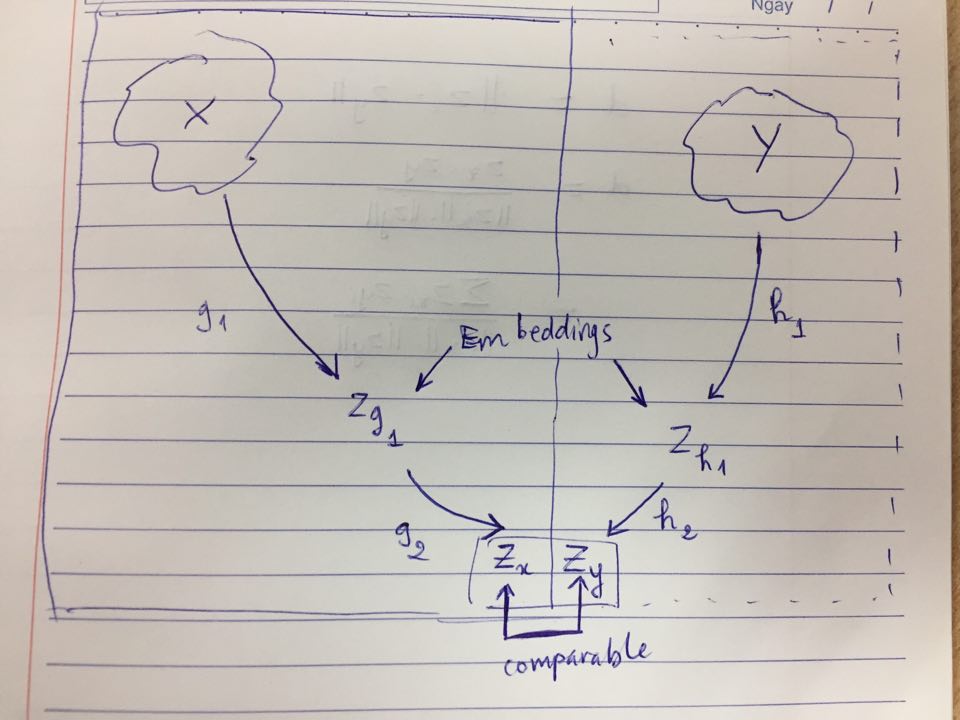 Ngày / /
X
Y
g₁
h₁
Embeddings
Z_g₁
Z_h₁
g₂
h₂
Zₓ Z_y
comparable